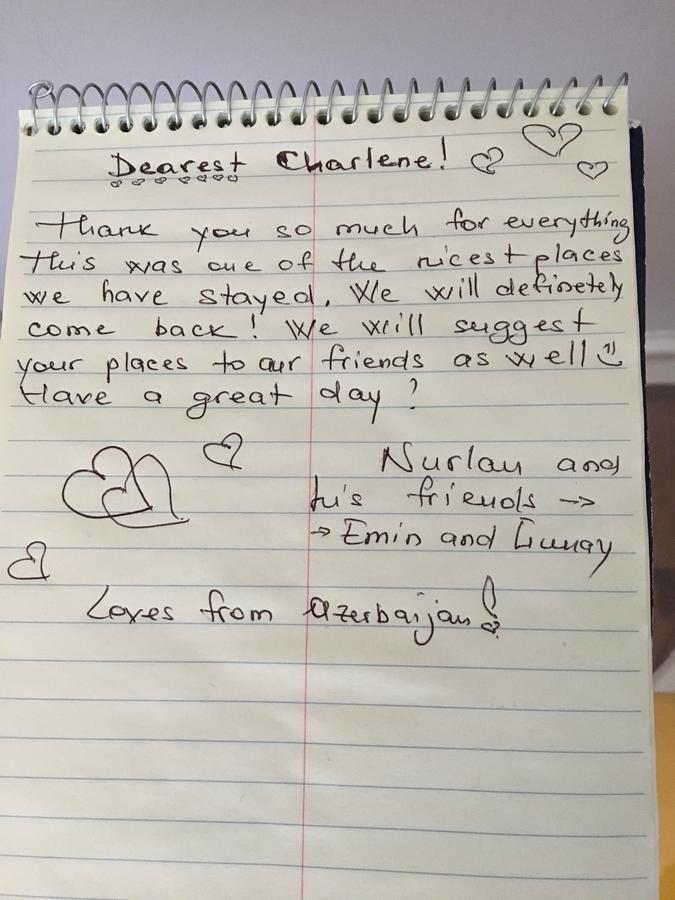 Dearest Charlene!
Thank you so much for everything
this was one of the nicest places
we have stayed. We will definetely
come back! We will suggest
your places to our friends as well
Have a great day!
Nurlan and
his friends →
→ Emin and Gunay
Loves from Azerbaijan!